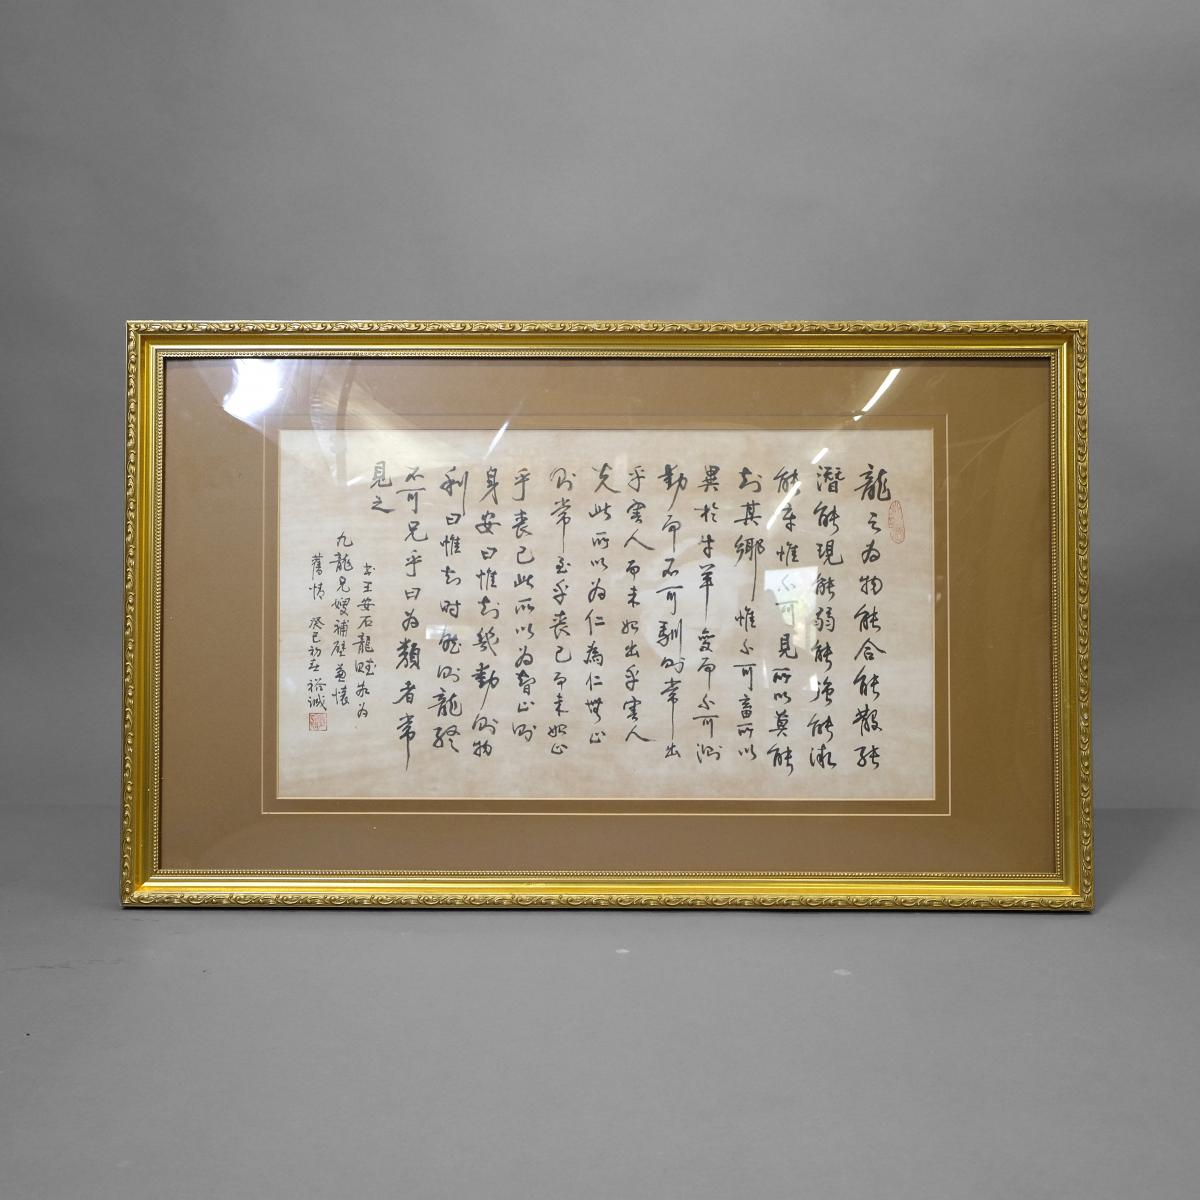 龍之為物能合能散能
潛能現能弱能強能微
能章惟不可見所以莫能
知其鄉惟不可畜所以
異於牛羊變而不可測
動而不可馴則常出
乎害人而未始出乎害人
夫此所以為仁為仁無止
則常至乎喪己而未始止
乎喪己此所以為智止則
身安曰惟知幾動則物
利曰惟知時然則龍終
不可見乎曰為類者常
見之
書王安石龍賦句為
九龍兄嫂補壁並懷
舊情 癸巳初春 裕誠